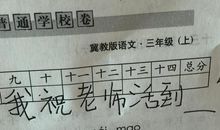 普通学校卷
冀教版语文·三年级（上）
九 十 十一 十二 十三 十四 总分
我祝老师活到